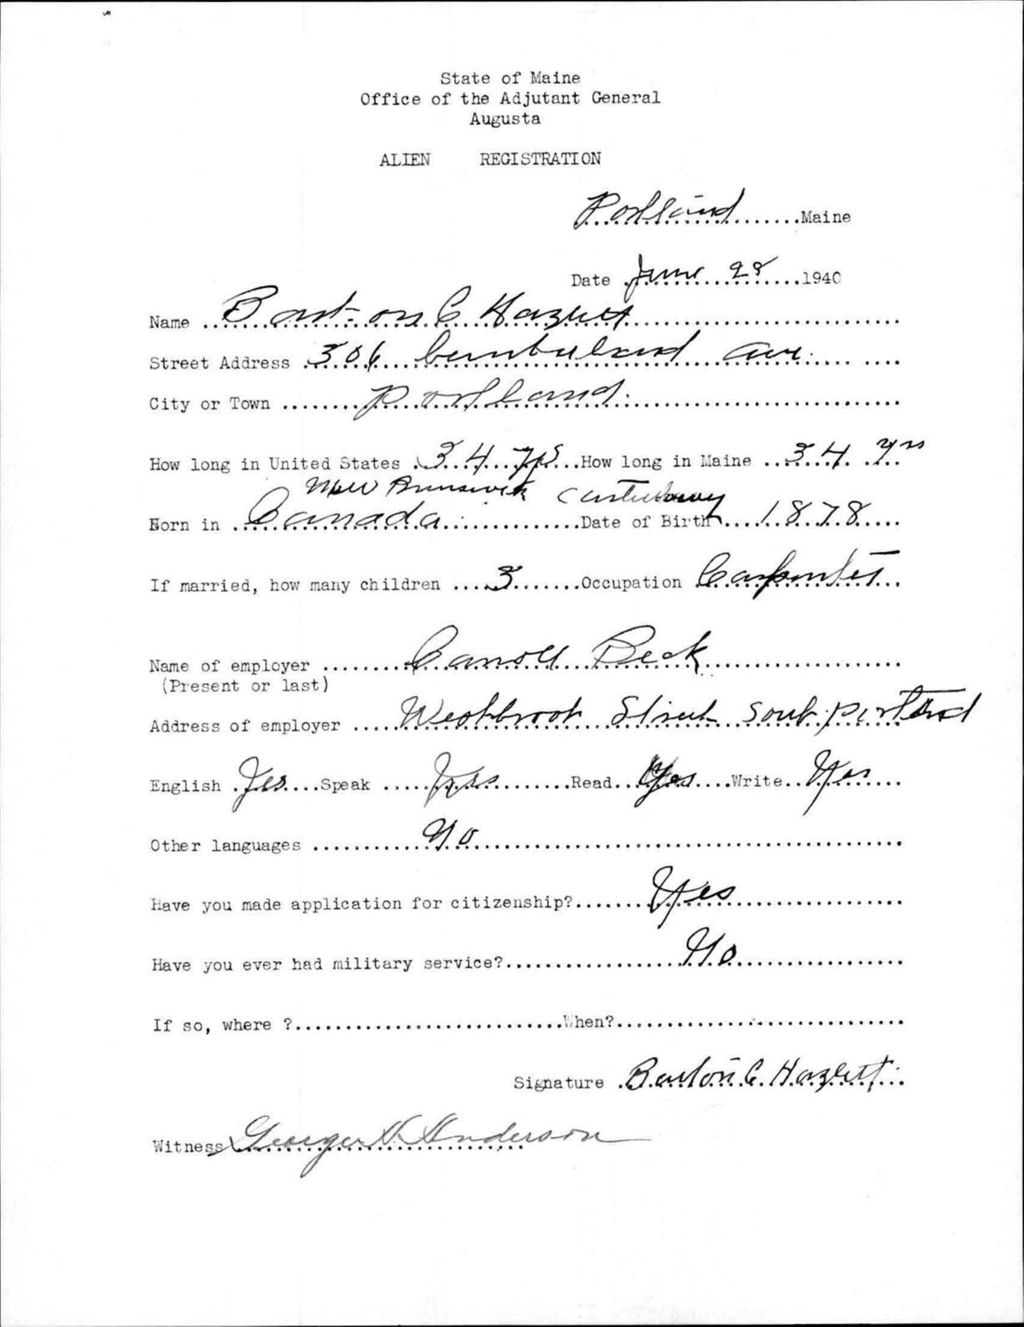 State of Maine
Office of the Adjutant General
Augusta
ALIEN REGISTRATION
Portland.......Maine
Date June 28 1940
Name Barton C Hazlett
Street Address 306 Cumbuland Ave.
City or Town Portland.
How long in United States 34 yrs How long in Maine 34 yrs
New Brunswick Canterbury
Born in Canada Date of Birth 1878
If married, how many children 3 Occupation Carpenter
Name of employer Carroll Beck
(Present or last)
Address of employer Westbrook Street South portland
English Yes Speak Yes Read Yes Write Yes
Other languages No
Have you made application for citizenship? Yes
Have you ever had military service? No
If so, where ? When?
Signature Barton C. Hazlett
Witness George N Anderson